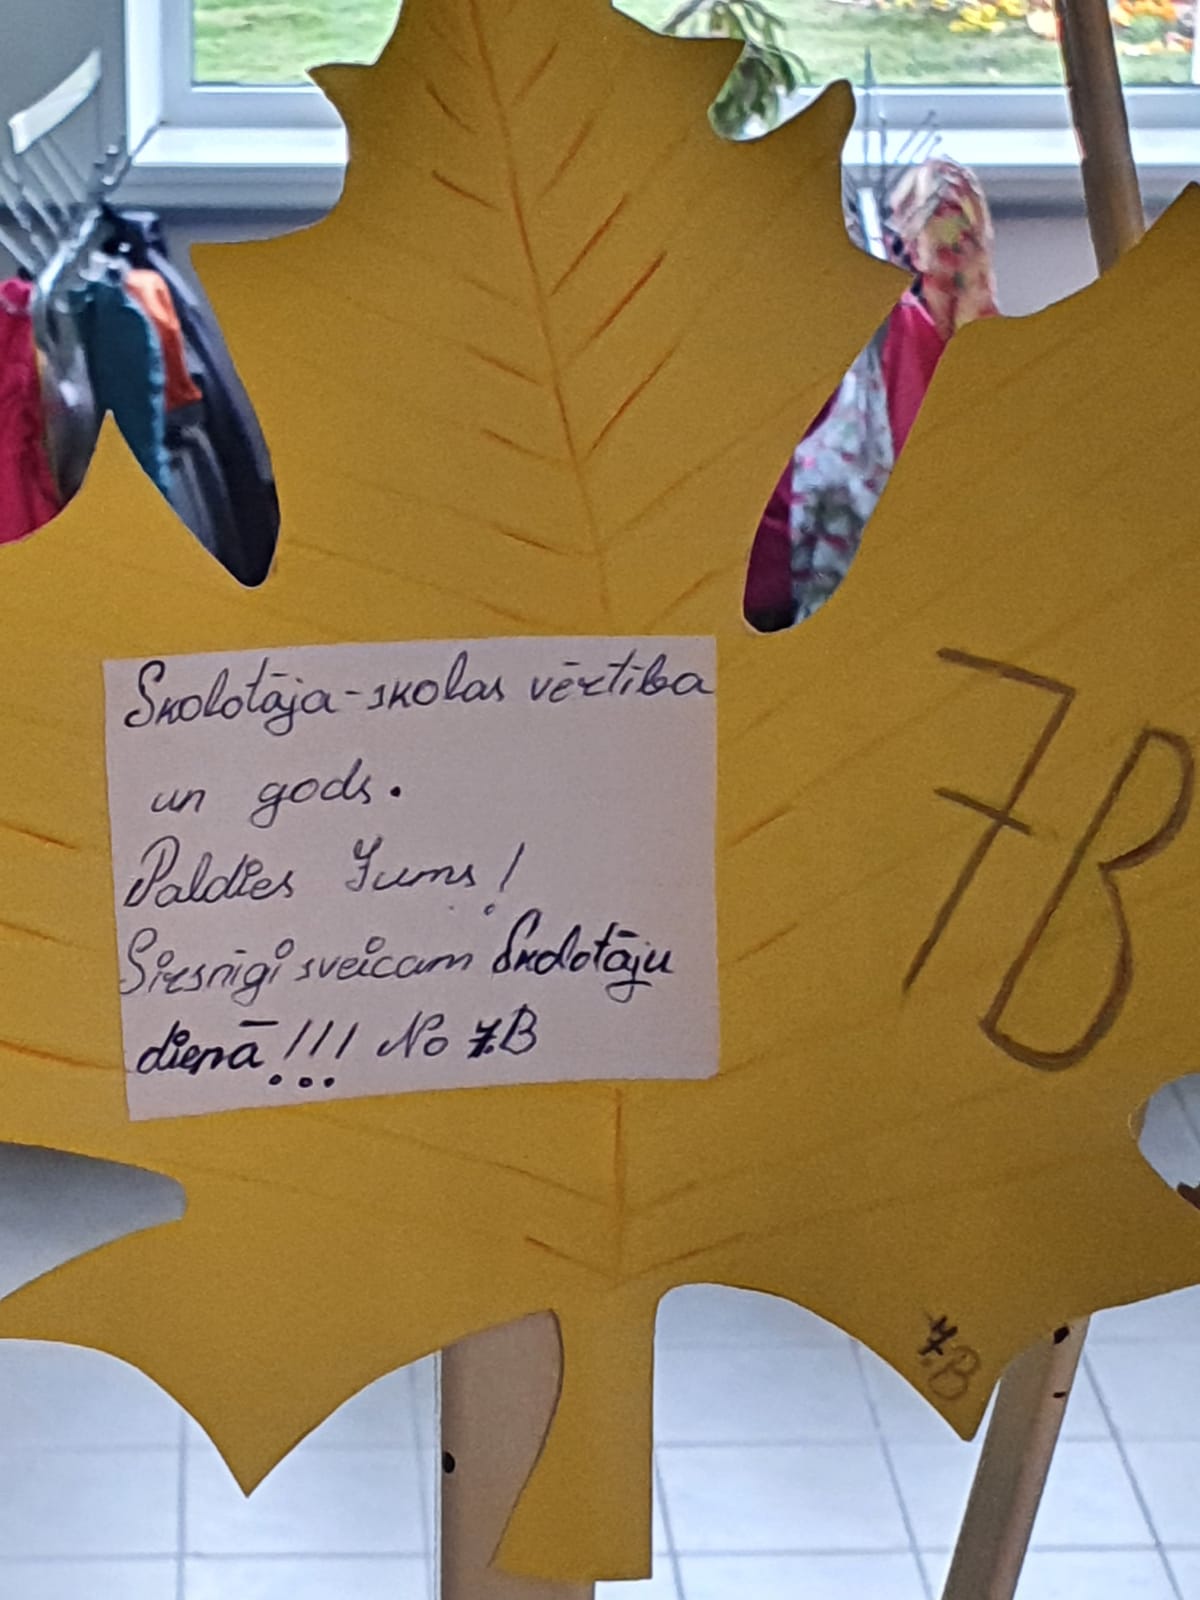 Skolotāja-skolas vērtība
un gods.
Paldies Jums!
Sirsnīgi sveicam Skolotāju
dienā!!! No 7.B
7B
7.B